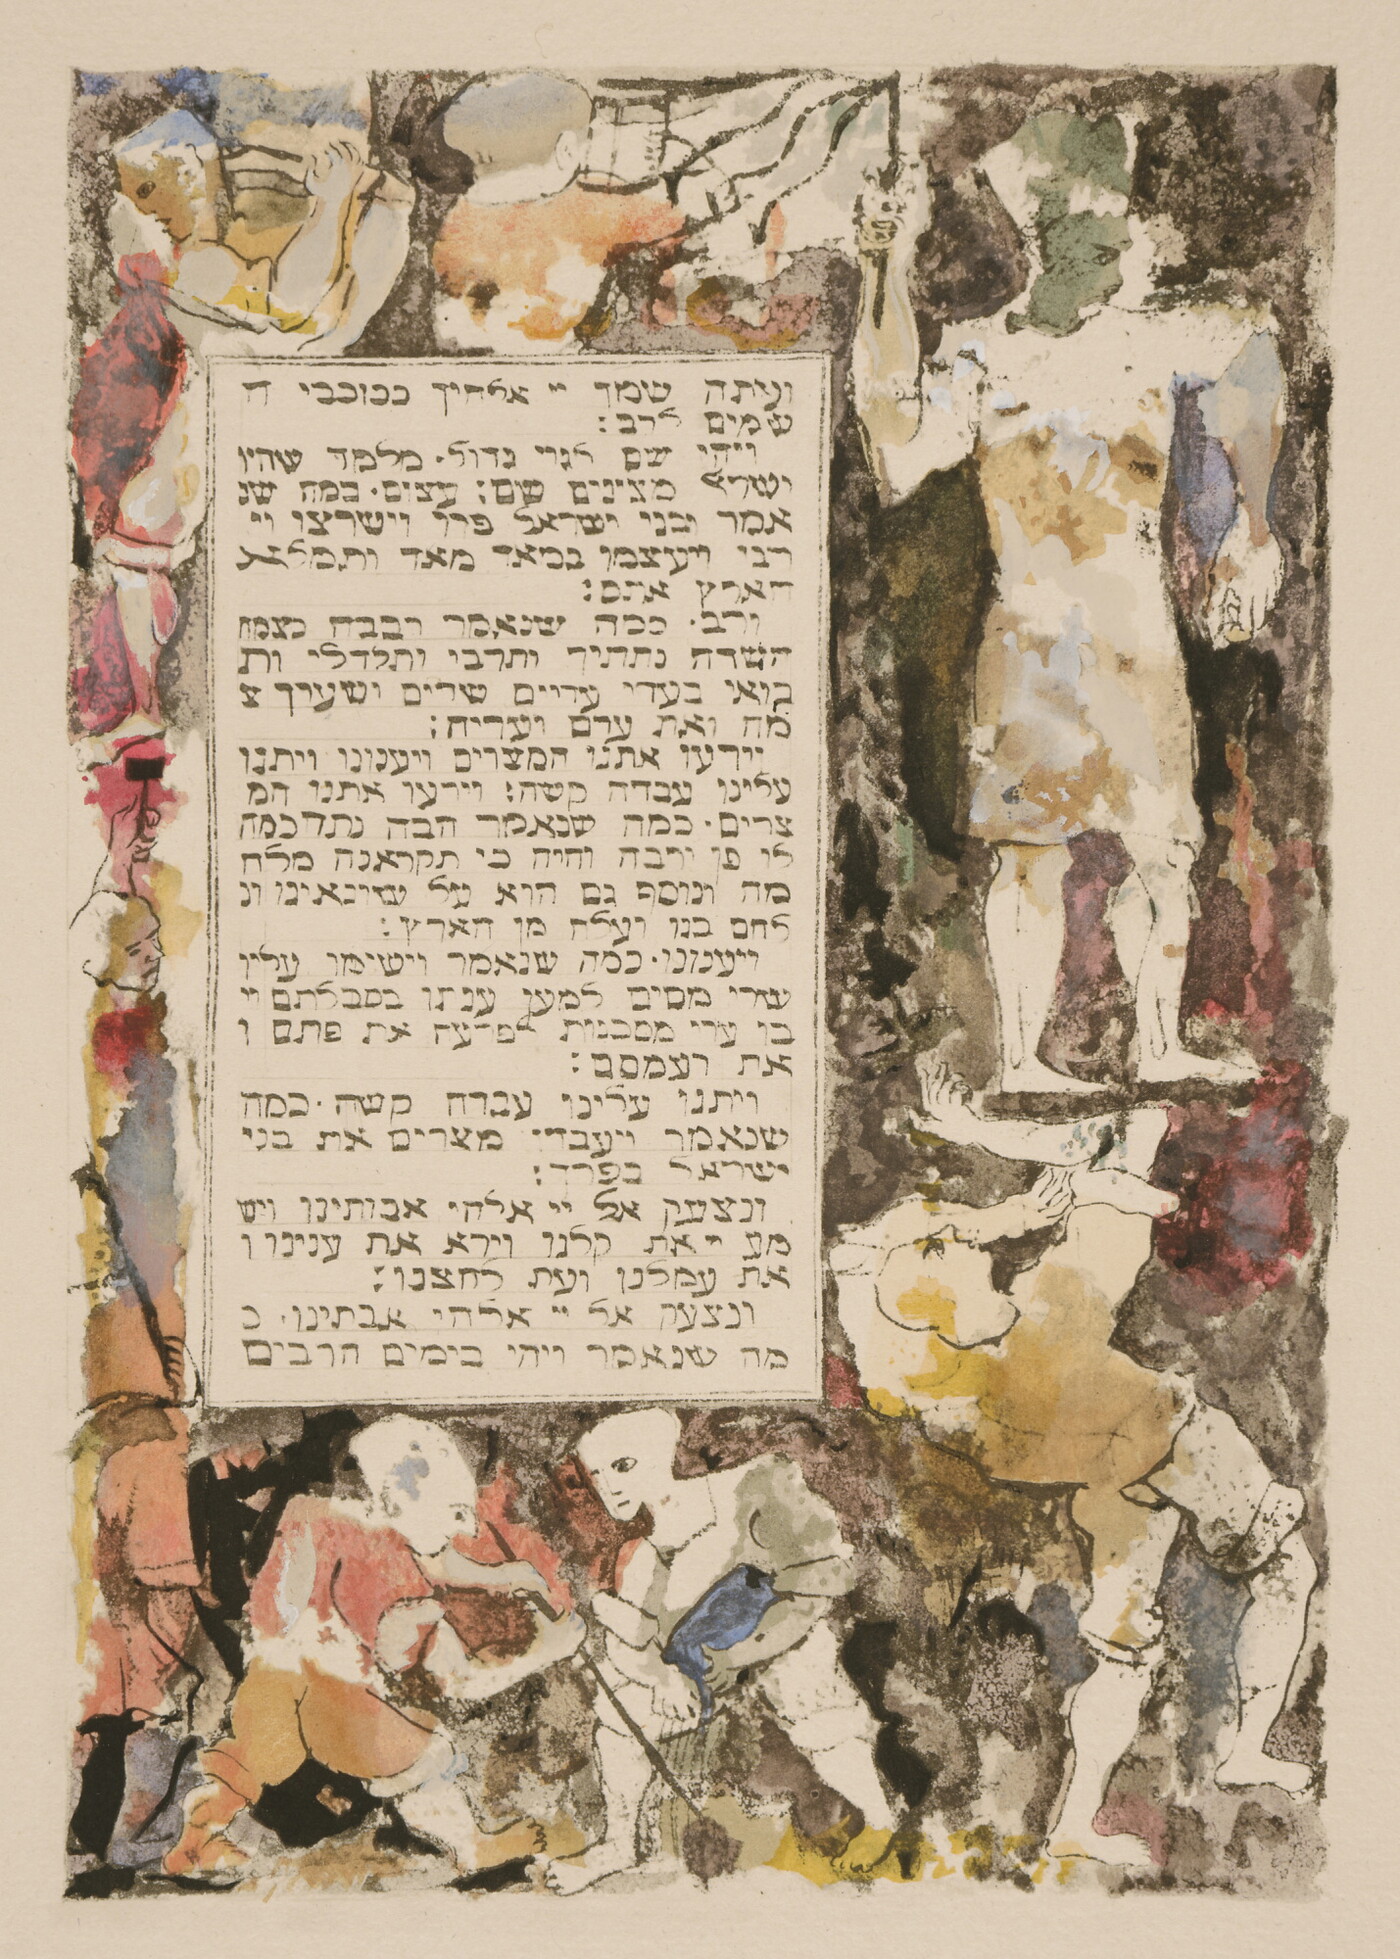 ועתה שמך יי אלהיך ככוכבי ה
שמים לרב:
ויהי שם לגוי גדול. מלמד שהיו
ישראל מצינים שם: עצום. כמה שנ
אמר ובני ישראל פרו וישרצו וי
רבו ויעצמו במאד מאד ותמלא
הארץ אתם:
ורב. כמה שנאמר רבבה כצמח
השדה נתתיך ותרבי ותגדלי ות
בואי בעדי עדיים שדים ושערך צ
מח ואת ערם ועריה:
וירעו אתנו המצרים ויענונו ויתנו
עלינו עבדה קשה: וירעו אתנו המ
צרים. כמה שנאמר הבה נתחכמה
לו פן ירבה והיה כי תקראנה מלח
מה ונוסף גם הוא על שונאינו ונ
לחם בנו ועלה מן הארץ:
ויענונו. כמה שנאמר וישימו עליו
שרי מסים למען ענתו בסבלתם וי
בן ערי מסכנות לפרעה את פתם ו
את רעמסס:
ויתנו עלינו עבדה קשה. כמה
שנאמר ויעבדו מצרים את בני
ישראל בפרך:
ונצעק אל יי אלהי אבותינו ויש
מע יי את קלנו וירא את ענינו ו
את עמלנו ואת לחצנו:
ונצעק אל יי אלהי אבתינו. כ
מה שנאמר ויהי בימים הרבים